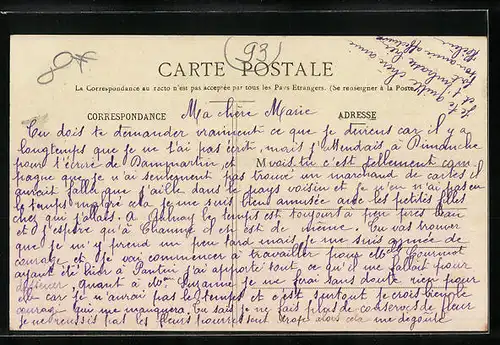 (93)
CARTE POSTALE
La Correspondance au recto n'est pas acceptée par tous les Pays Etrangers. (Se renseigner à la Poste)
CORRESPONDANCE
ADRESSE
Ma chère Marie
Tu dois te demander vraiment ce que je deviens car il y a
longtemps que je ne t'ai pas écrit, mais j'attendais à Dimanche
pour t'écrire de Dammartin, et vois tu c'est tellement cam
pagne que je n'ai seulement pas trouvé un marchand de cartes il
aurait fallu que j'aille dans le pays voisin et je n'en ai pas eu
le temps malgré cela je me suis bien amusée avec les petites filles
chez qui j'allais. A Aulnay le temps est toujours à peu près beau
et j'espère qu'à Chaumes il en est de même. Tu vas trouver
que je m'y prend un peu tard mais je me suis armée de
courage et je vais commencer à travailler pour Melle
ayant été hier à Pantin j'ai apporté tout ce qu'il me fallait pour
commencer, quant à Me Suzanne je ne ferai sans doute rien pour
elle car je n'aurai pas le temps et c'est surtout je crois le
courage qui me manquera. Tu sais je ne fais plus de conserves de fleur
je ne réussis pas les fleurs pourrissent alors cela me dégoute